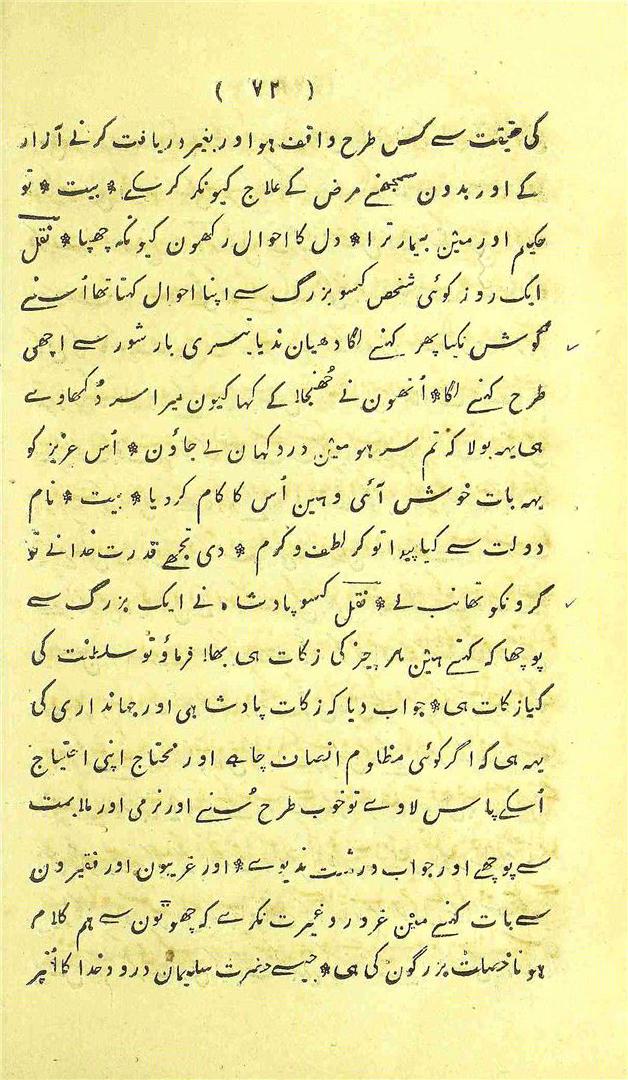 ( ۷۲ )
کی حقیقت سے کس طرح واقف ہو اور بغیر دریافت کرنے آزار
کے اور بدون سمجھنے مرض کے علاج کیونکر کر سکے * بیت * تو
حکیم اور مین بیمار ترا * دل کا احوال رکھون کیونکہ چھپا * نقل
ایک روز کوئی شخص کسو بزرگ سے اپنا احوال کہتا تھا اُسنے
گوش نکیا پھر کہنے لگا دھیان ندیا تیسری بار شور سے اچھی
طرح کہنے لگا * اُنھون نے جُھنجلا کے کہا کیون میرا سر دُکھاوے
ہی یہہ بولا کہ تم سر ہو مین درد کہان لے جاؤن * اُس عزیز کو
یہہ بات خوش آئی وہین اُس کا کام کر دیا * بیت * نام
دولت سے کیا پیدا تو کر لطف و کرم * دی تجھے قدرت خدا نے تو
گرونکو تھانب لے * نقل کسو پادشاہ نے ایک بزرگ سے
پوچھا کہ کہتے ہین ہر چیز کی زکات ہی بھلا فرماؤ تو سلطنت کی
کیا زکات ہی * جواب دیا کہ زکات پادشاہی اور جہانداری کی
یہہ ہی کہ اگر کوئی مظلوم انصاف چاہے اور محتاج اپنی احتیاج
اُسکے پاس لاوے تو خوب طرح سُنے اور نرمی اور ملایمت
سے پوچھے اور جواب درشت ندیوے * اور غریبون اور فقیرون
سے بات کہنے مین غرور و غیرت نکرے کہ چھوٹون سے ہم کلام
ہونا خصلت بزرگون کی ہی * جیسے حضرت سلیمان درود خدا کا اُنپر